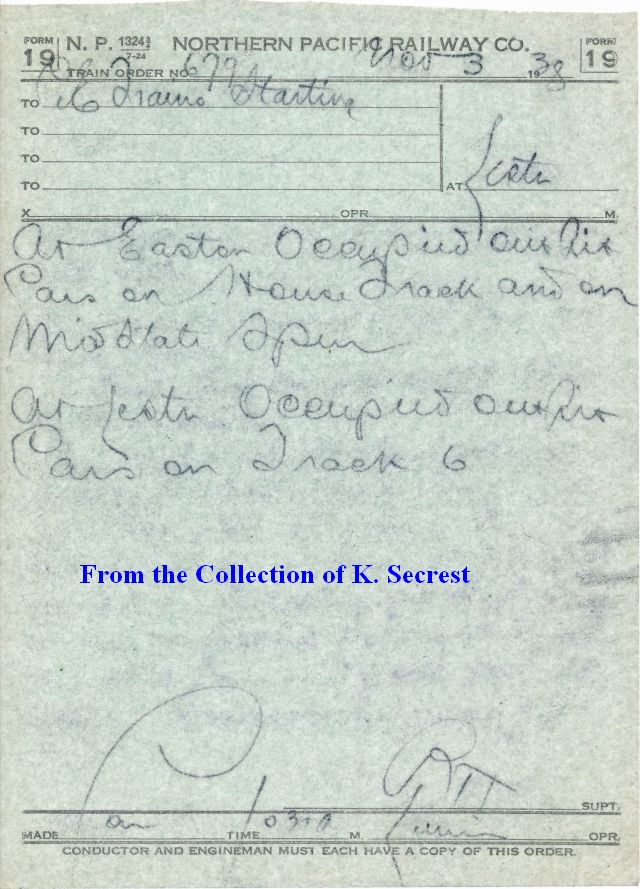 FORM 19 N. P. 1324½ 7-24 NORTHERN PACIFIC RAILWAY CO. FORM 19
TRAIN ORDER NO. 679 Nov 3 1938
TO Trains Starting
TO
TO
TO AT Lester
X OPR. M.
At Easton Occupied outfit
Cars on House Track and on
Spur
At Lester Occupied outfit
Cars on Track 6
From the Collection of K. Secrest
SUPT.
MADE TIME M. OPR.
CONDUCTOR AND ENGINEMAN MUST EACH HAVE A COPY OF THIS ORDER.